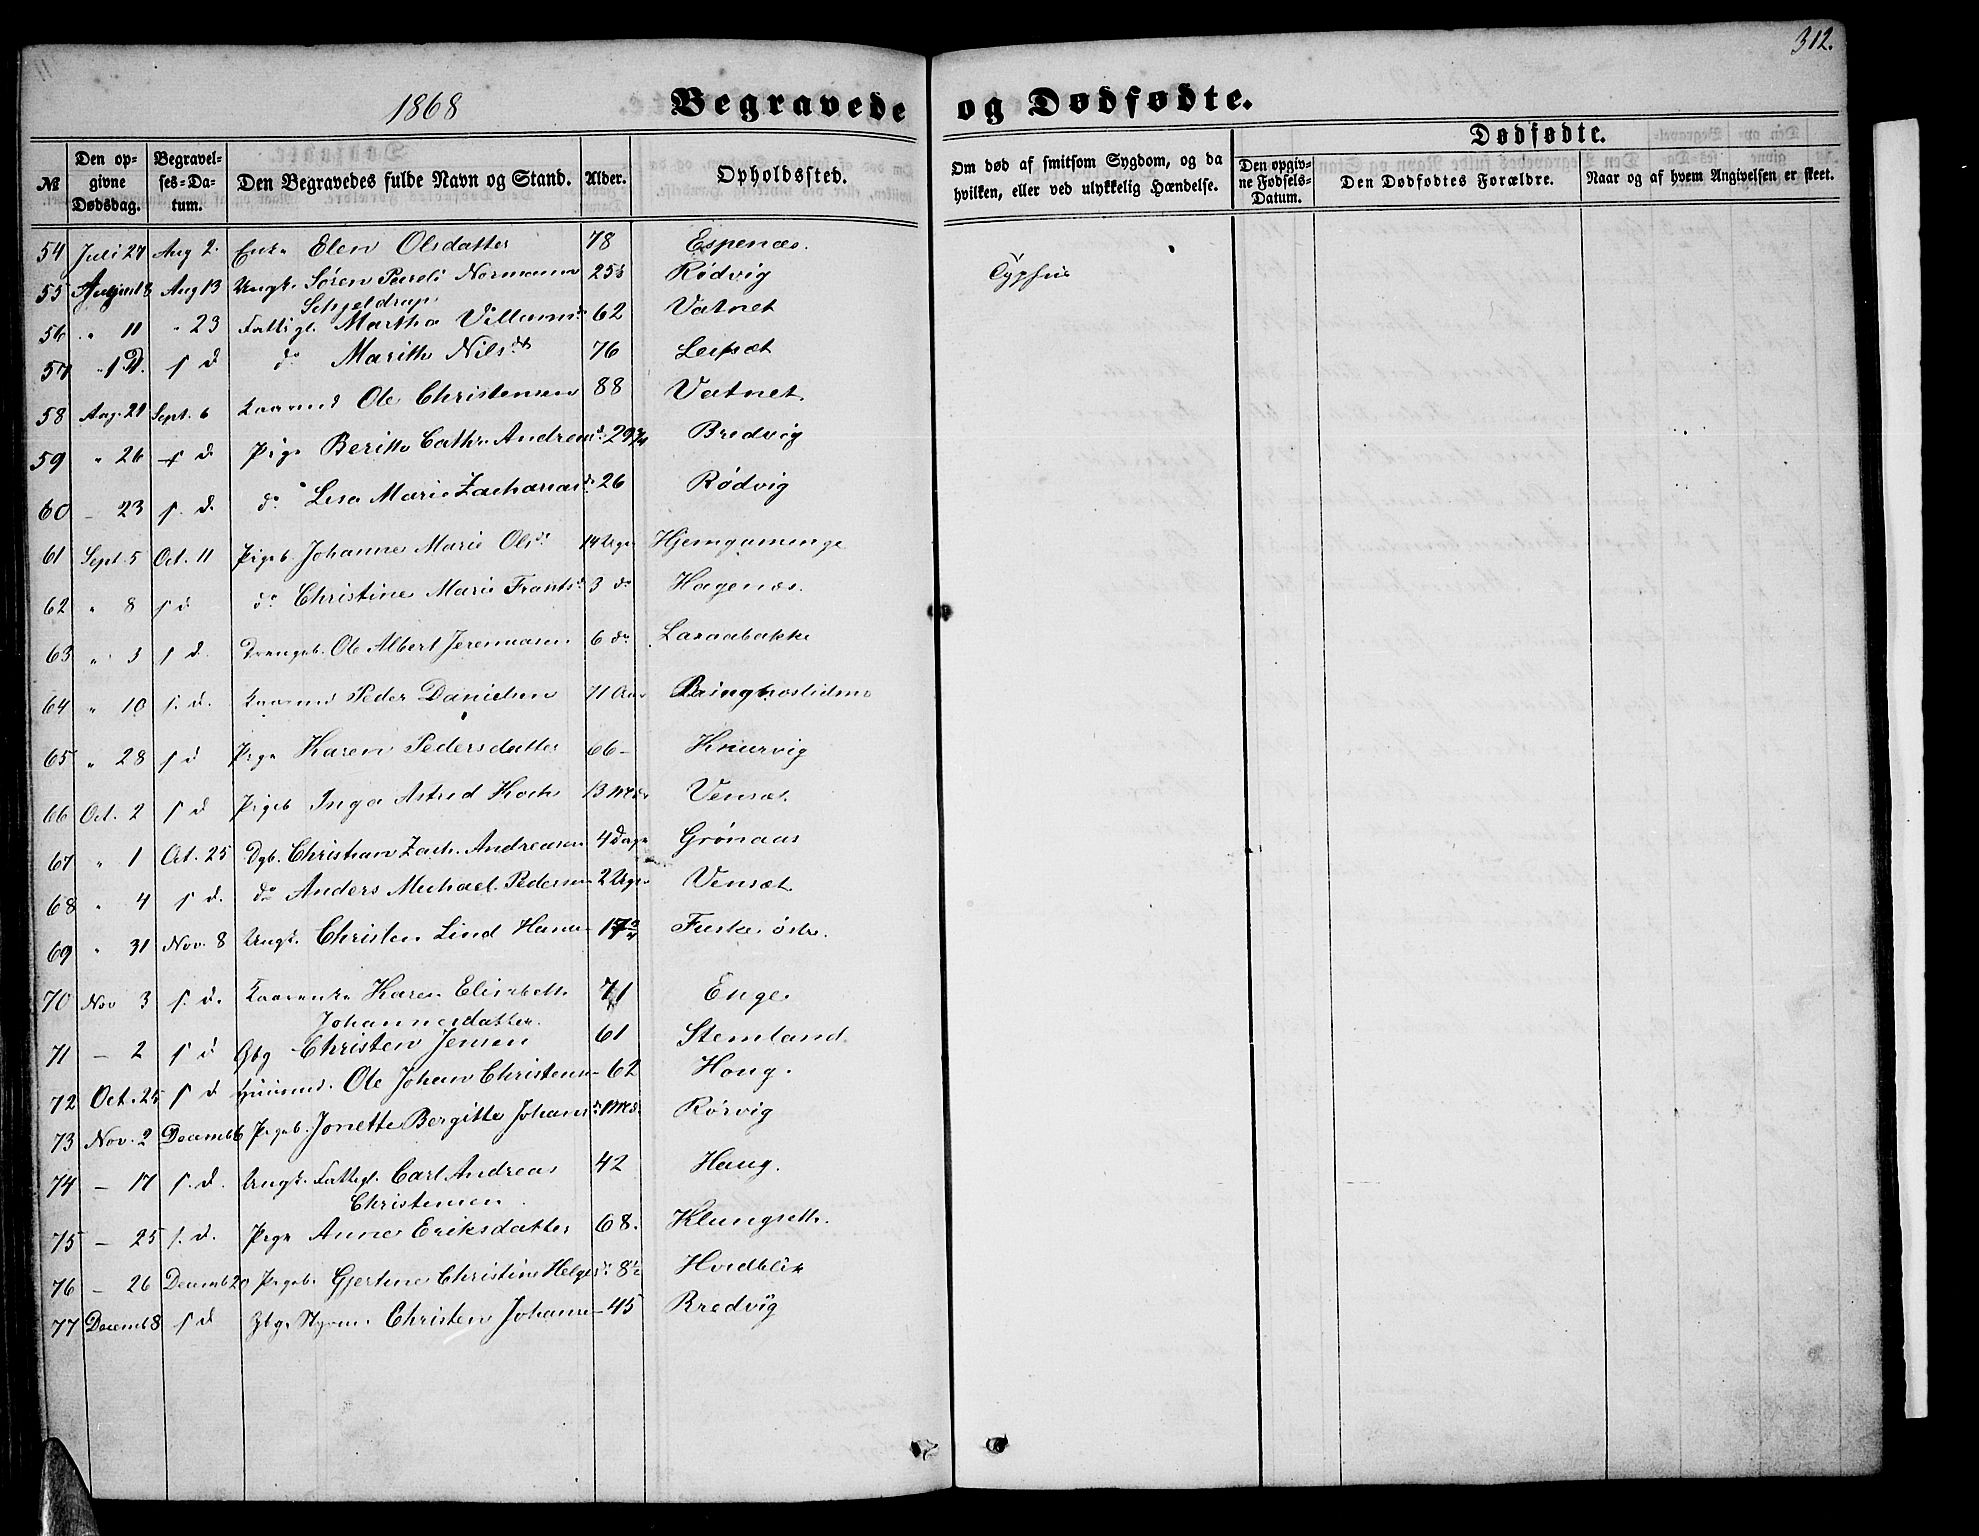 312.
1868 Begravede og Dødfødte.
Dødfødte.
№ Den opgivne Dødsdag. Begravelses-Datum. Den Begravedes fulde Navn og Stand. Alder. Opholdssted. Om død af smitsom Sygdom, og da hvilken, eller ved ulykkelig Hændelse. Den opgivne Fødsels-Datum. Den Dødfødtes Forældre. Naar og af hvem Angivelsen er skeet.
54 Juli 27 Aug 2. Enke Elen Olsdatter 78 Espenæs.
55 August 8 Aug 13 Ungk. Søren Normann 25 Rødvig Typhus
Schjeldrup
56 " 11 " 23 Fattigl. Martha Villums d. 62 Vatnet
57 s d do Marith Nilsdt 76 Leifsæt
58 Aug. 21 Sept. 6 Kaarmd Ole Christensen 88 Vatnet
59 " 26 s d. Pige Beritte Cath. Andreasd. 29 Bredvig
60 - 23 s. d. do Lesa Marie Zachariasd. 26 Rødvig
61 Sept. 5 Oct. 11 Pigeb. Johanne Marie Olsd. 14 Uger Hjemgamenge
62 " 8 s d do Christine Marie Frantsd. 3 do Hagenæs.
63 " 3 s d. Drengeb. Ole Albert Jeremiasen 6 do Lasaabakke
64 " 10 s. d. Kaarmd Peder Danielsen 71 Aar
65 " 28 s d Pige Karen Pedersdatter 66 - Knurvig
66 Oct. 2 s d Pigeb Inga Astrid Koch 13 Mdr Vensæt
67 " 1 Oct. 25 Dgb. Christian Zach. Andreasen 4 Dage Grønaas
68 " 4 s d. do Anders Michael Pedersen 2 Uger Vensæt
69 " 31 Nov. 8 Ungk. Christen Lind Hans- 17 Fuske østre.
70 Nov 3 s. d. Kaarenke Karen Elisabeth 71 Enge.
Johannesdatter.
71 - 2 s d Gbg Christen Jensen 61 Stemland.
72 Oct. 25 s d Huusmd. Ole Johan Christens- 62 Haug.
73 Nov. 2 Decemb 6 Pigeb. Jonette Bergitte Johans d. 1 Md. Rørvig
74 - 17 s. d. Ungk. Fattigl. Carl Andreas 42 Haug.
Christensen.
75 - 25 s. d. Pige Anne Eriksdatter 68. Klungseth.
76 - 26 Decemb 20 Pigeb. Gjertine Christine Helgesd. 8½ Hvidblik
77 Decemb 8 s d Gbg. Christen Johans- 45 Bredvig